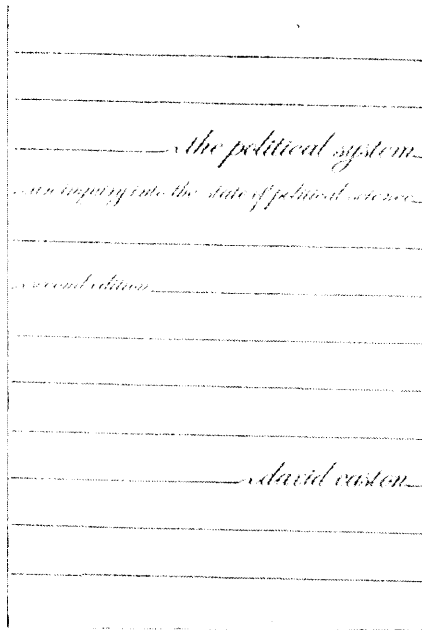 the political system
an inquiry into the state of political science
second edition
david easton